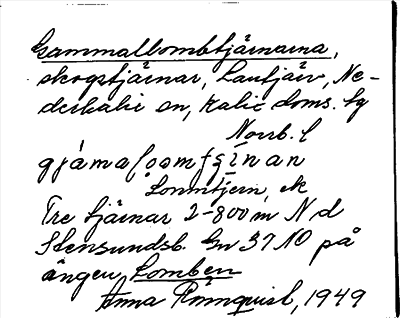 Gammallombtjärnarna,
skogstjärnar, Lantjärv, Ne-
derkalix sn, Kalix doms. lg
Norrb. l
Lommtjern, ek
Tre tjärnar 2-800 m N d
Stensundsb. Gv 37 NO på
ängen Lomben
Anna Rönnqvist, 1949